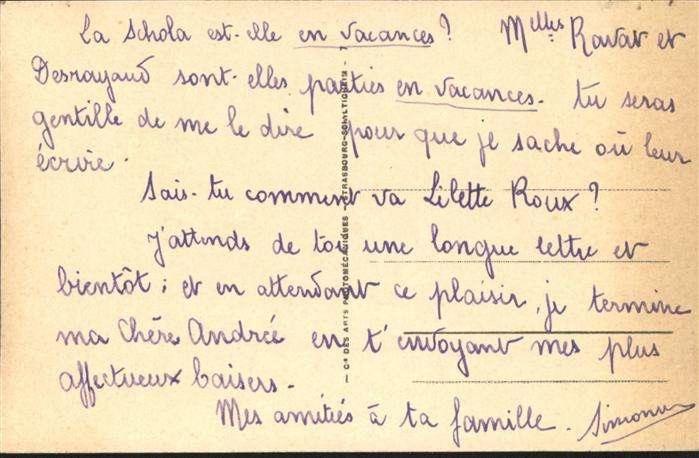 La Schola est-elle en vacances ? Melles Ravat et
Desrayaud sont-elles parties en vacances. tu seras
gentille de me le dire pour que je sache où leur
écrire.
Sais-tu comment va Lilette Roux ?
J'attends de toi une longue lettre et
bientôt ; et en attendant ce plaisir, je termine
ma Chère Andrée en t'envoyant mes plus
affectueux baisers.
Mes amitiés à ta famille. Simonne
Cie DES ARTS PHOTOMÉCANIQUES — STRASBOURG-SCHILTIGHEIM —